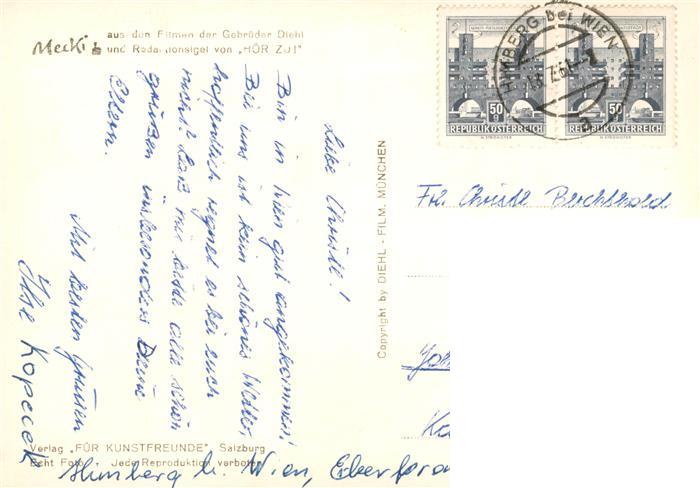 Mecki
aus den Filmen der Gebrüder Diehl
und Redaktionsigel von „HÖR ZU!"
Liebe Christl!
Bin in Wien gut angekommen!
Bei uns ist kein schönes Wetter,
hoffentlich regnet es bei euch
nicht? Lass mir bitte alle schön
grüßen insbesonders Deine
Eltern.
Mit besten Grüßen
Ilse Kopecek
Verlag „FÜR KUNSTFREUNDE", Salzburg
Echt Foto - Jede Reproduktion verboten
Himberg b. Wien,
Copyright by DIEHL - FILM, MÜNCHEN
HIMBERG bei WIEN
50 g
REPUBLIK ÖSTERREICH
50 g
REPUBLIK ÖSTERREICH
Frl. Christl Berchthold